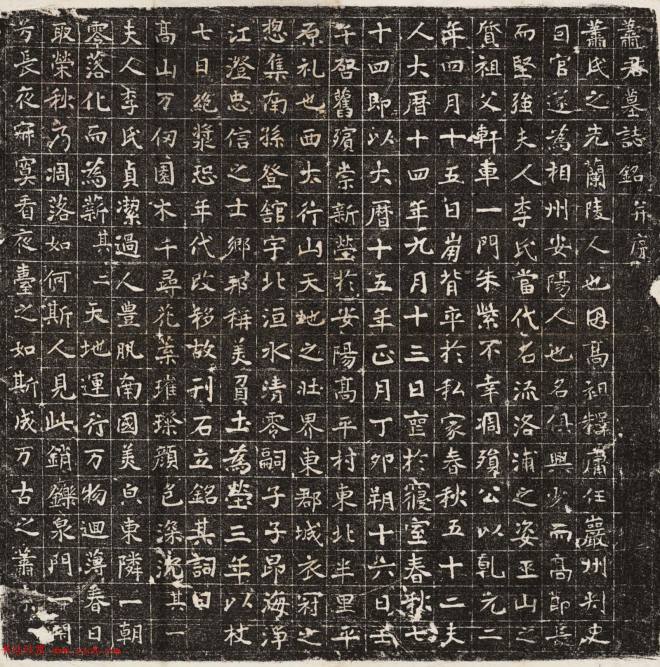 蕭君墓誌銘并序
蕭氏之先蘭陵人也因高祖釋蕭任巖州判史
官遂為相州安陽人也名俱興少而高節長
而堅強夫人李氏當代名流洛浦之姿巫山之
質祖父軒車一門朱紫不幸凋殞公以乾元二
年四月十五日崩背卒於私家春秋五十二夫
人大曆十四年九月十三日於寢室春秋七
十四即以大曆十五年正月丁卯朔十六日壬
午啓舊殯崇新塋於安陽高平村東北半里平
原礼也西太行山天地之壯界東郡城衣冠之
惣集南孫登舘宇北洹水清零嗣子子昂海淨
江澄忠信之士鄉邦稱美負土為塋三年以杖
七日絕漿恐年代改移故刊石立銘其詞曰
高山万仞園木千尋花葉璀璨顏色深沈其一
夫人李氏貞潔過人豊肌南國美白東隣一朝
零落化而為薪其二天地運行万物迴薄春日
取榮秋乃凋落如何斯人見此銷鑠泉門一閇
兮長夜寂寞看夜臺之如斯成万古之蕭